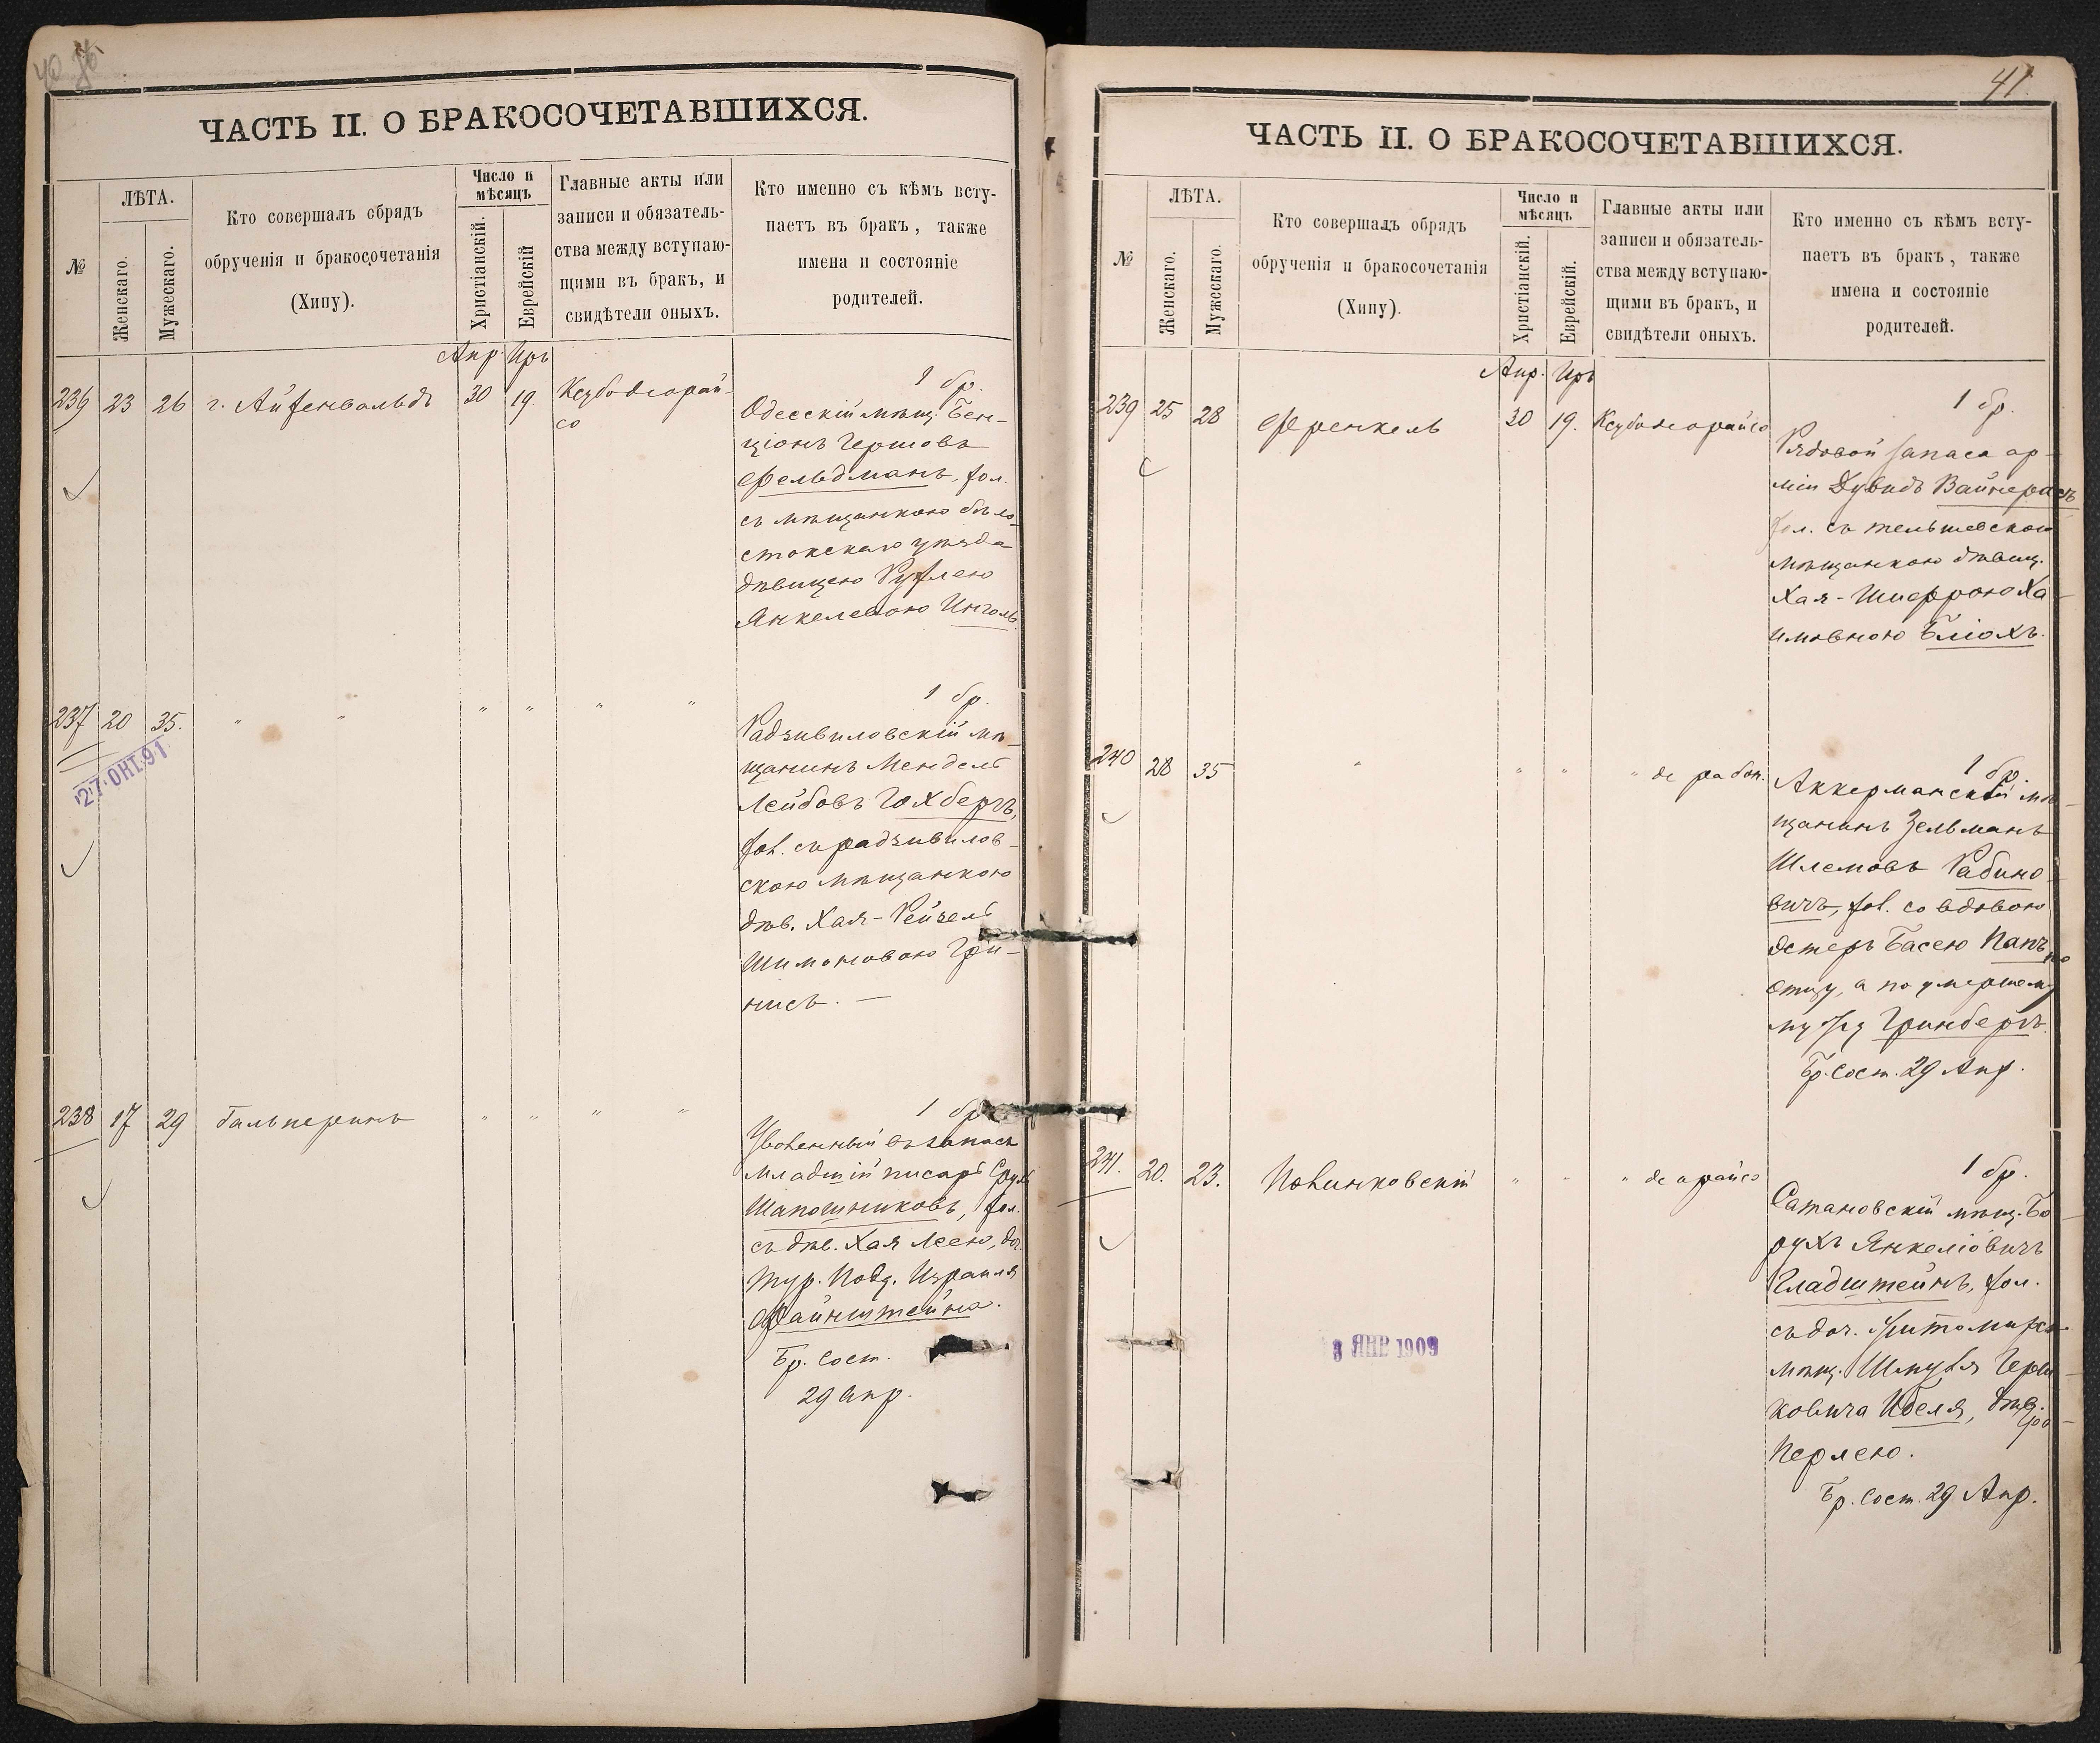 40
ЧАСТЬ II. О БРАКОСОЧЕТАВШИХСЯ.
№
ЛѢТА.
Женскаго.
Мужескаго.
Кто совершалъ обрядъ
обрученія и бракосочетанія
(Хипу).
Число и
мѣсяцъ
Христіанскій.
Еврейскій
Главные акты или
записи и обязатель-
ства между вступаю-
щими въ бракъ, и
свидѣтели оныхъ.
Кто именно съ кѣмъ всту-
паетъ въ бракъ, также
имена и состояніе
родителей.
Апр. Иръ
236 23 26 г. Айзенвальдъ 30 19. Ксубодеорай-
со
1 бр.
Одесскій мѣщ. Бен-
ціонъ Гершовъ
Фельдманъ, хол.
съ мѣщанкою бѣло-
стокскаго уѣзда
дѣвицею Рухлею
Янкелевою Инголь.
237 20 35. " " " " " "
27 ОКТ. 91
1 бр.
Радзивиловскій мѣ-
щанинъ Мендель
Лейбовъ Гохбергъ,
хол. съ радзивилов-
скою мѣщанкою
дѣв. Хая-Рейзель
Шимоновою Гри-
нисъ. —
238 17 29 Гальперинъ " " " "
1 бр.
Уволенный въ запасъ
младшій писарь Сруль
Шапошниковъ, хол.
съ дѣв. Хая Леею, доч.
тур. подд. Израиля
Файнштейна.
Бр. сост.
29 Апр.
41.
ЧАСТЬ II. О БРАКОСОЧЕТАВШИХСЯ.
№
ЛѢТА.
Женскаго.
Мужескаго.
Кто совершалъ обрядъ
обрученія и бракосочетанія
(Хипу).
Число и
мѣсяцъ
Христіанскій.
Еврейскій.
Главные акты или
записи и обязатель-
ства между вступаю-
щими въ бракъ, и
свидѣтели оныхъ.
Кто именно съ кѣмъ всту-
паетъ въ бракъ, также
имена и состояніе
родителей.
Апр. Иръ
239 25 28 Френкель 30 19. Ксубодеорайсо
1 бр.
Рядовой запаса ар-
міи Дувидъ Вайнерасъ
хол. съ тельшевскою
мѣщанкою дѣвиц.
Хая-Шифрою Ха-
имовною Бліохъ.
240 28 35 " " " " де рабон.
1 бр.
Аккерманскій мѣ-
щанинъ Зельманъ
Шлемовъ Рабино-
вичъ, хол. со вдовою
Эстеръ Басею Папъ по
отцу, а по умершему
мужу Гринбергъ.
Бр. сост. 29 Апр.
241. 20. 23. Полинковскій " " " деорайсо
1 бр.
Сатановскій мѣщ. Бо-
рухъ Янкеліовичъ
Гладштейнъ, хол.
съ доч. Житомирск.
мѣщ. Шмуля Герш-
ковича Ибеля, дѣв.
Перлею.
Бр. сост. 29 Апр.
8 ЯНВ 1909